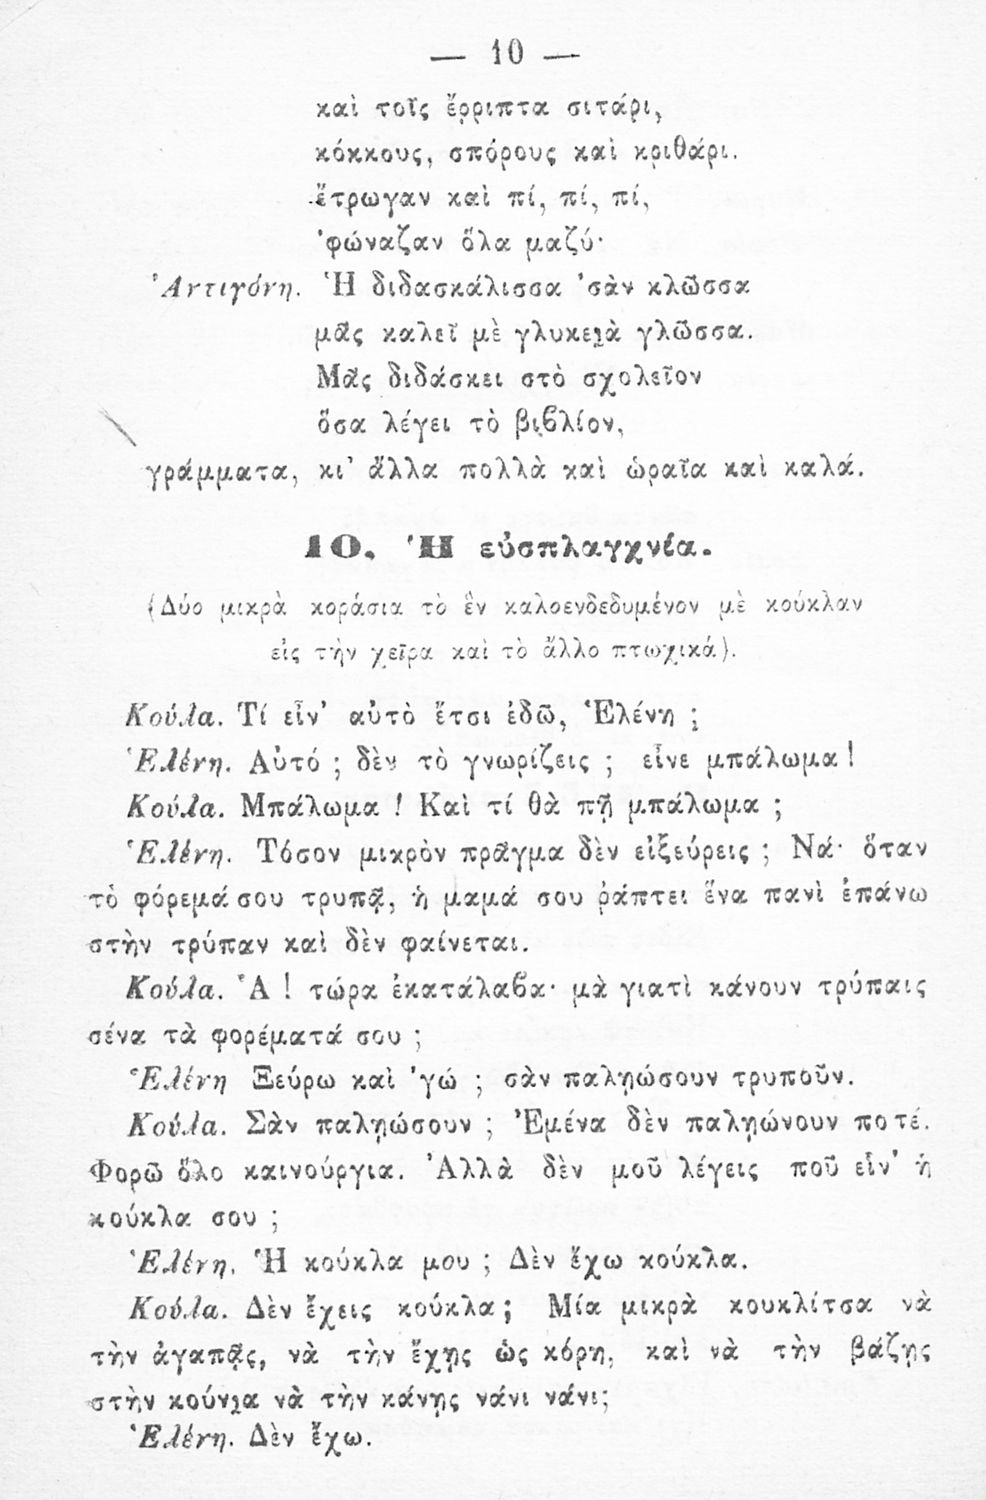 — 10 —
καὶ τοῖς ἔρριπτα σιτάρι,
κόκκους, σπόρους καὶ κριθάρι.
ἔτρωγαν καὶ πί, πί, πί,
'φώναζαν ὅλα μαζύ·
Ἀντιγόνη. Ἡ διδασκάλισσα 'σὰν κλῶσσα
μᾶς καλεῖ μὲ γλυκειὰ γλῶσσα.
Μᾶς διδάσκει στὸ σχολεῖον
ὅσα λέγει τὸ βιβλίον,
γράμματα, κι' ἄλλα πολλὰ καὶ ὡραῖα καὶ καλά.
10. Ἡ εὐσπλαγχνία.
(Δύο μικρὰ κοράσια τὸ ἓν καλοενδεδυμένον μὲ κούκλαν
εἰς τὴν χεῖρα καὶ τὸ ἄλλο πτωχικά).
Κούλα. Τί εἶν' αὐτὸ ἔτσι ἐδῶ, Ἑλένη ;
Ἑλένη. Αὐτό ; δὲν τὸ γνωρίζεις ; εἶνε μπάλωμα !
Κούλα. Μπάλωμα ! Καὶ τί θὰ πῇ μπάλωμα ;
Ἑλένη. Τόσον μικρὸν πρᾶγμα δὲν εἰξεύρεις ; Νά· ὅταν
τὸ φόρεμά σου τρυπᾷ, ἡ μαμά σου ῥάπτει ἕνα πανὶ ἐπάνω
στὴν τρύπαν καὶ δὲν φαίνεται.
Κούλα. Ἀ ! τώρα ἐκατάλαβα· μὰ γιατὶ κάνουν τρύπαις
σένα τὰ φορέματά σου ;
Ἑλένη Ξεύρω καὶ 'γώ ; σὰν παληώσουν τρυποῦν.
Κούλα. Σὰν παληώσουν ; Ἐμένα δὲν παληώνουν ποτέ.
Φορῶ ὅλο καινούργια. Ἀλλὰ δὲν μοῦ λέγεις ποῦ εἶν' ἡ
κούκλα σου ;
Ἑλένη. Ἡ κούκλα μου ; Δὲν ἔχω κούκλα.
Κούλα. Δὲν ἔχεις κούκλα; Μία μικρὰ κουκλίτσα νὰ
τὴν ἀγαπᾷς, νὰ τὴν ἔχῃς ὡς κόρη, καὶ νὰ τὴν βάζῃς
στὴν κούνια νὰ τὴν κάνῃς νάνι νάνι;
Ἑλένη. Δὲν ἔχω.